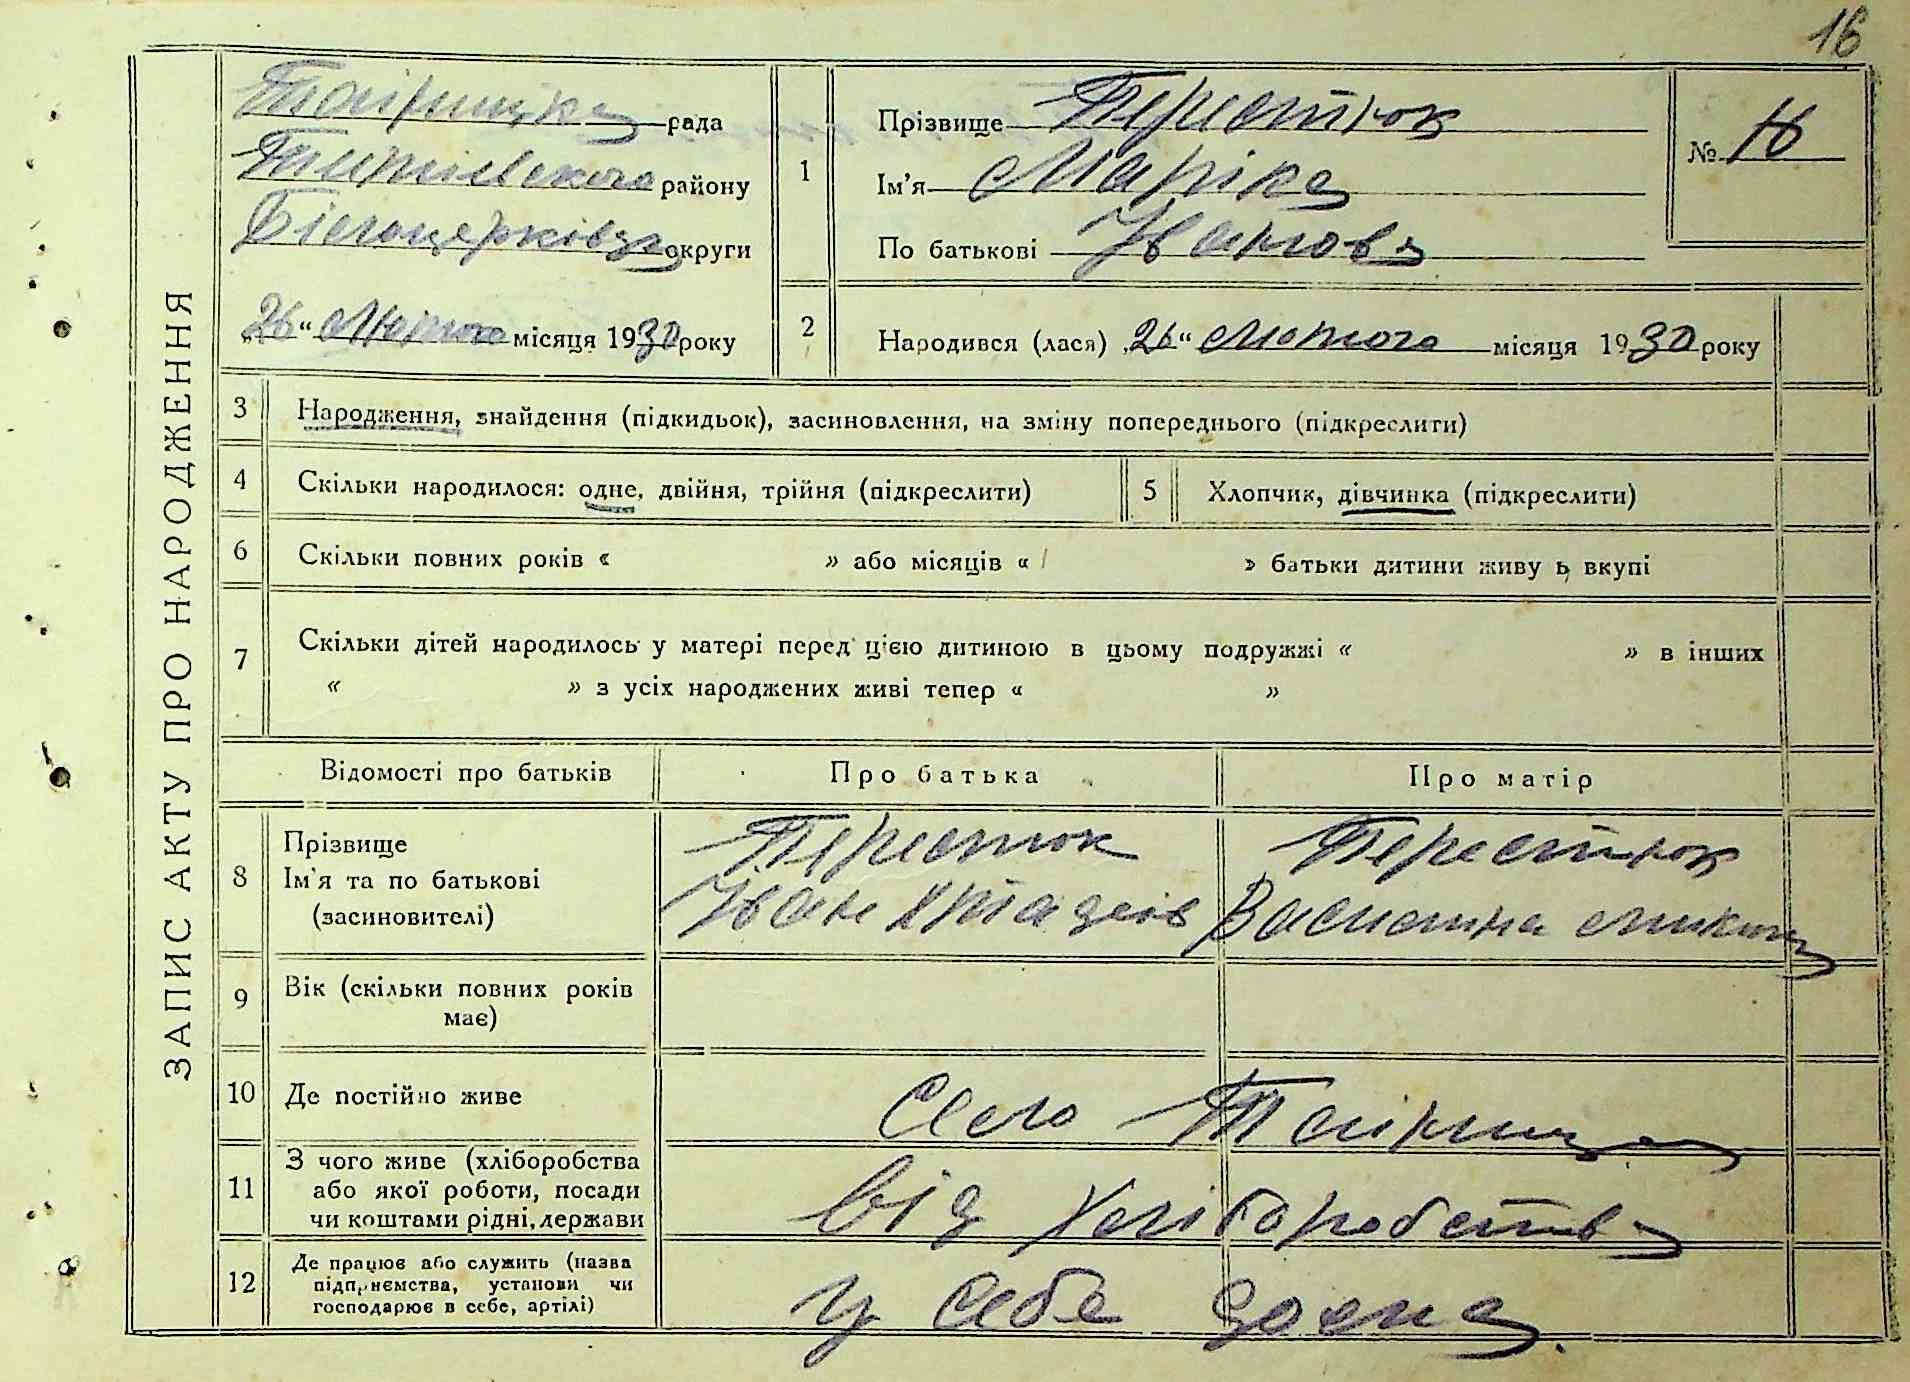 16
ЗАПИС АКТУ ПРО НАРОДЖЕННЯ
рада
району
Білоцерківська округи
„26“ Лютого місяця 1930 року
1
Прізвище Перистюк
Ім'я Маріка
По батькові Іванова
№
2
Народився (лася) „26“ Лютого місяця 1930 року
3
Народження, знайдення (підкидьок), засиновлення, на зміну попереднього (підкреслити)
4
Скільки народилося: одне, двійня, трійня (підкреслити)
5
Хлопчик, дівчинка (підкреслити)
6
Скільки повних років « » або місяців « » батьки дитини живуть вкупі
7
Скільки дітей народилось у матері перед цією дитиною в цьому подружжі « » в інших
« » з усіх народжених живі тепер « »
Відомості про батьків
Про батька
Про матір
8
Прізвище
Ім'я та по батькові
(засиновителі)
Перистюк
Іван
Перестюк
9
Вік (скільки повних років
має)
10
Де постійно живе
Село
11
З чого живе (хліборобства
або якої роботи, посади
чи коштами рідні, держави
від хліборобства
12
Де працює або служить (назва
підприємства, установи чи
господарює в себе, артілі)
у себе дома